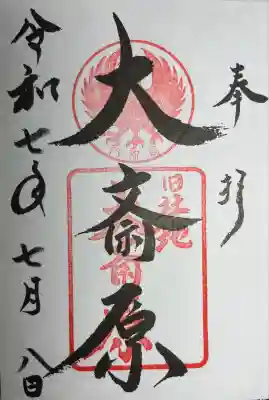 奉拝
大斎原
旧社地
令和七年七月八日